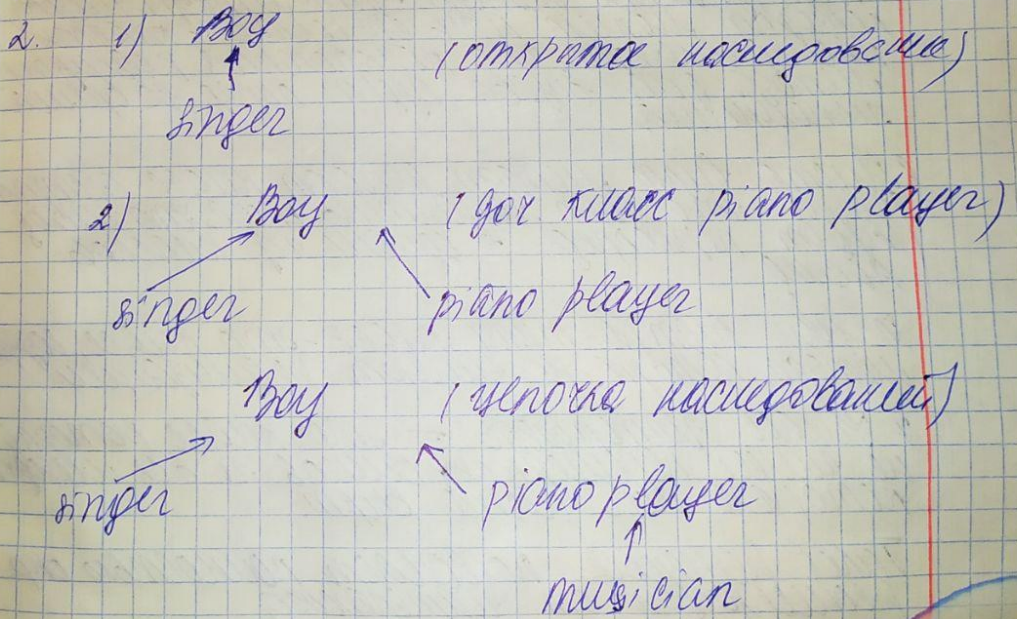 2. 1) Boy (открытое наследование)
singer
2) Boy (доч класс piano player)
singer piano player
Boy (цепочка наследований)
singer piano player
musician